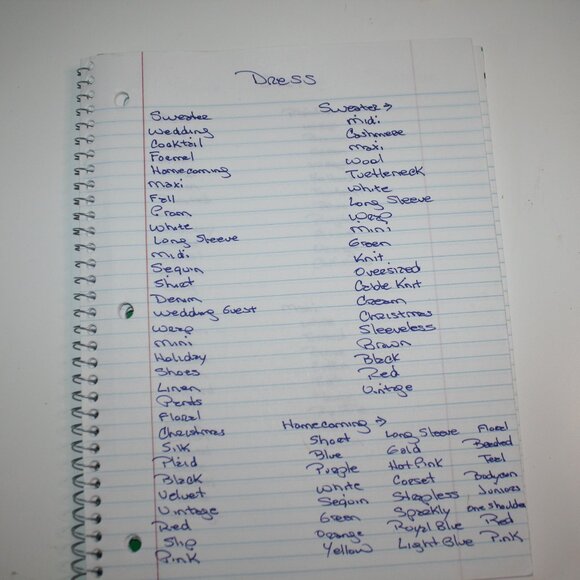 Dress
Sweater
Wedding
Cocktail
Formal
Homecoming
Maxi
Fall
Prom
White
Long Sleeve
Midi
Sequin
Shirt
Denim
Wedding Guest
Wrap
Mini
Holiday
Shoes
Linen
Pants
Floral
Christmas
Silk
Plaid
Black
Velvet
Vintage
Red
Slip
Pink
Sweater →
Midi
Cashmere
Maxi
Wool
Turtleneck
White
Long Sleeve
Wrap
Mini
Green
Knit
Oversized
Cable Knit
Cream
Christmas
Sleeveless
Brown
Black
Red
Vintage
Homecoming →
Short
Blue
Purple
White
Sequin
Green
Orange
Yellow
Long Sleeve
Gold
Hot Pink
Corset
Strapless
Sparkly
Royal Blue
Light Blue
Floral
Beaded
Teal
Bodycon
Juniors
One Shoulder
Red
Pink